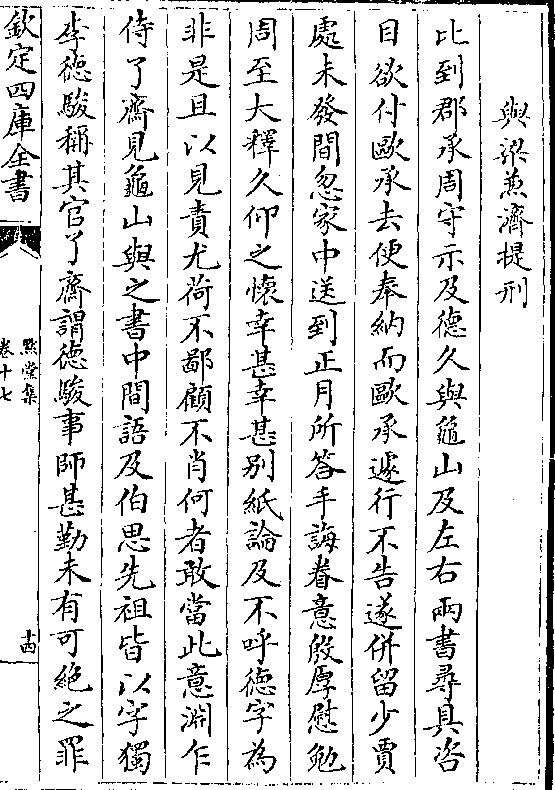 與梁蒹濟提刑
比到郡承周守示及德久與龜山及左右兩書尋具咨
目欲付歐承去便奉納而歐承遽行不告遂併留少賈
處未發間忽家中送到正月所答手誨眷意殷厚慰勉
周至大釋久仰之懷幸甚幸甚别紙論及不呼德字為
非是且以見責尤荷不鄙顧不肖何者敢當此意淵乍
侍了齋見龜山與之書中間語及伯思先祖皆以字獨
李德駿稱其官了齋謂德駿事師甚勤未有可絶之罪
欽定四庫全書
黙堂集
卷十七
十四